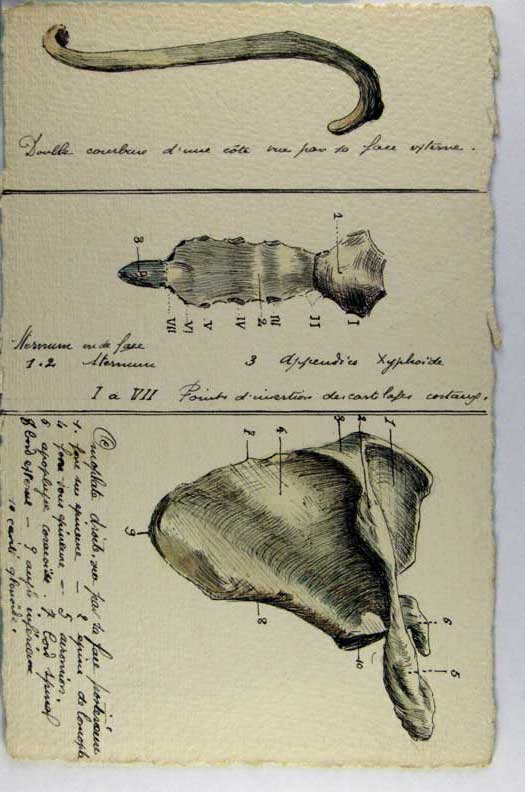 Double courbure d'une côte vue par sa face externe.
3
VII
VI
V
IV
2
III
II
1
I
Sternum vu de face
1.2 Sternum 3 Appendice Xyphoïde
I a VII Points d'insertion des cartilages costaux.
1
2
3
4
7
9
8
10
6
5
Omoplate droite, vue par sa face postérieure
1. fosse sus épineuse — 2 épine de l'omoplate
4 fosse sous épineuse — 5 acromion.
6 apophyse coracoïde. 7. bord spinal
8 bord externe — 9 angle inférieur
10 cavité glénoïde.